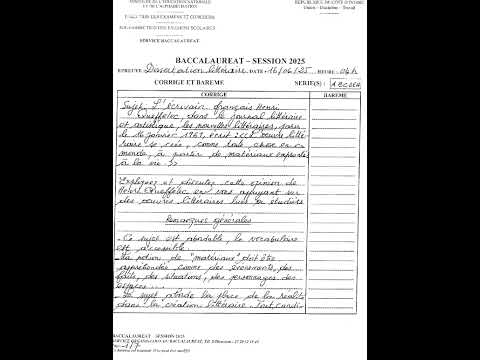 DE L'EDUCATION NATIONALE
ET DE L'ALPHABETISATION
REPUBLIQUE DE COTE D'IVOIRE
Union - Discipline - Travail
DIRECTION DES EXAMENS ET CONCOURS
SOUS-DIRECTION DES EXAMENS SCOLAIRES
SERVICE BACCALAUREAT
BACCALAUREAT – SESSION 2025
EPREUVE Dissertation littéraire DATE 16/06/25 HEURE 04h
CORRIGE ET BAREME SERIE(S) : ABCDEH
CORRIGE BAREME
Sujet : L'écrivain français Henri
Queffelec dans le journal littéraire
et artistique, les nouvelles littéraires, paru
le 16 janvier 1969, écrit : « L'œuvre litté-
raire se crée, comme toute chose en ce
monde, à partir de matériaux empruntés
à la vie. »
Expliquez et discutez cette opinion de
Henri Queffelec en vous appuyant sur
des œuvres littéraires lues ou étudiées
Remarques générales
- Ce sujet est abordable, le vocabulaire
est accessible.
- La notion de "matériaux" doit être
appréhendée comme des événements, des
faits, des situations, des personnages, des
espaces...
- Le sujet aborde la place de la réalité
dans la création littéraire. Tout candi-
BACCALAUREAT – SESSION 2025
SERVICE ORGANISATION DU BACCALAUREAT,
1/7